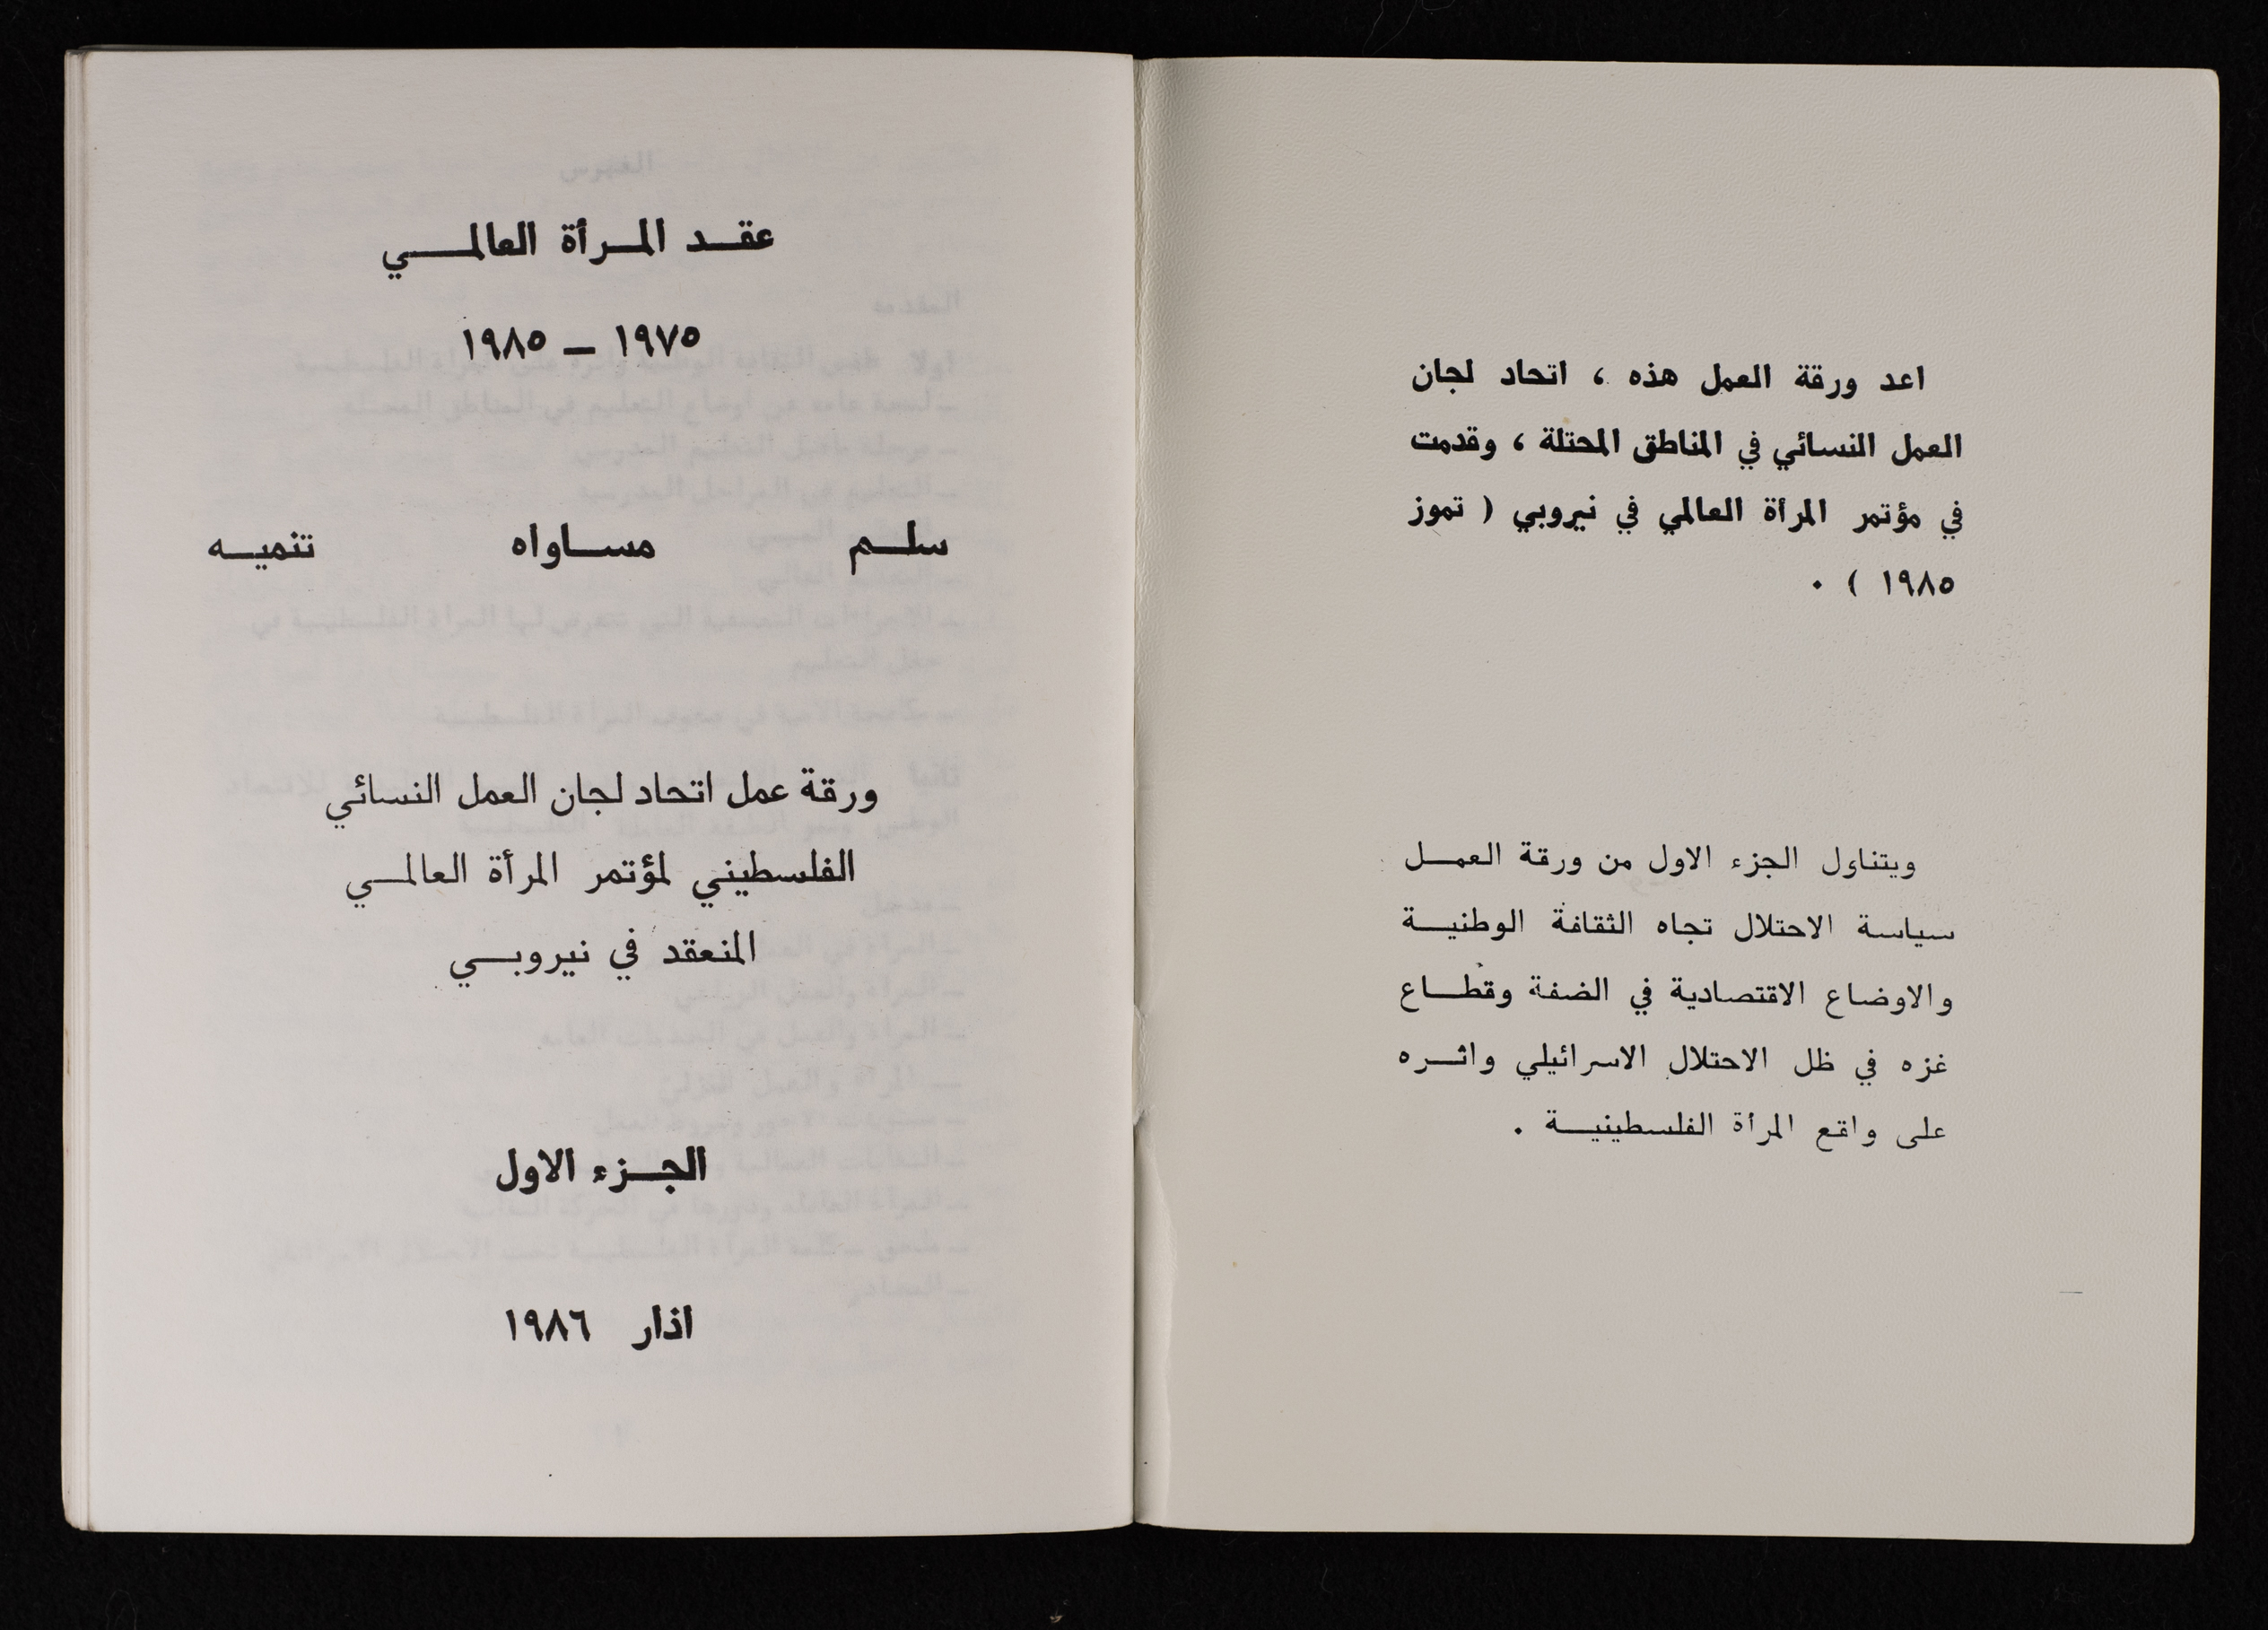 اعد ورقة العمل هذه ، اتحاد لجان
العمل النسائي في المناطق المحتلة ، وقدمت
في مؤتمر المرأة العالمي في نيروبي ( تموز
١٩٨٥ ) .
ويتناول الجزء الاول من ورقة العمل
سياسة الاحتلال تجاه الثقافة الوطنية
والاوضاع الاقتصادية في الضفة وقطاع
غزه في ظل الاحتلال الاسرائيلي واثره
على واقع المرأة الفلسطينية .
عقد المرأة العالمي
١٩٧٥ - ١٩٨٥
سلم مساواه تنميه
ورقة عمل اتحاد لجان العمل النسائي
الفلسطيني لمؤتمر المرأة العالمي
المنعقد في نيروبي
الجزء الاول
اذار ١٩٨٦